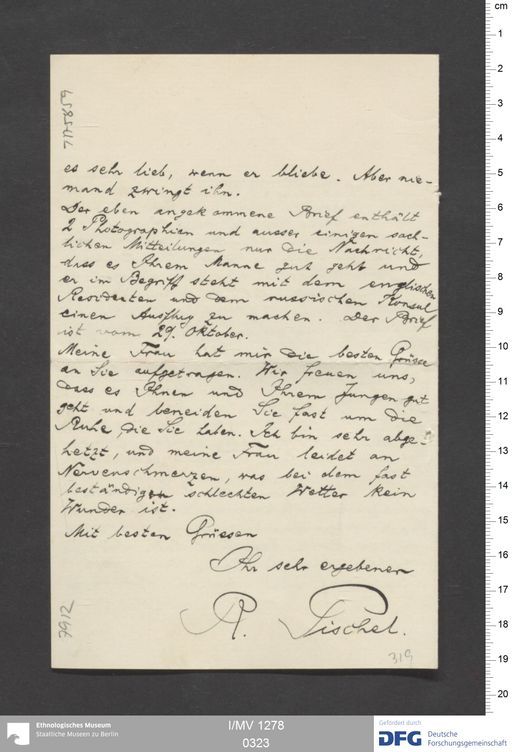 es sehr lieb, wenn er bliebe. Aber nie-
mand zwingt ihn.
Der eben angekommene Brief enthält
2 Photographien und ausser einigen sach-
lichen Mitteilungen nur die Nachricht,
dass es Ihrem Manne gut geht und
er im Begriff steht mit dem englischen
Residenten und dem russischen Konsul
einen Ausflug zu machen. Der Brief
ist vom 29. Oktober.
Meine Frau hat mir die besten Grüsse
an Sie aufgetragen. Wir freuen uns,
dass es Ihnen und Ihrem Jungen gut
geht und beneiden Sie fast um die
Ruhe, die Sie haben. Ich bin sehr abge-
hetzt, und meine Frau leidet an
Nervenschmerzen, was bei dem fast
beständigen schlechten Wetter kein
Wunder ist.
Mit besten Grüssen
Ihr sehr ergebener
R. Pischel.
319
cm
1
2
3
4
5
6
7
8
9
10
11
12
13
14
15
16
17
18
19
20
Ethnologisches Museum
Staatliche Museen zu Berlin
I/MV 1278
0323
Gefördert durch
DFG
Deutsche
Forschungsgemeinschaft